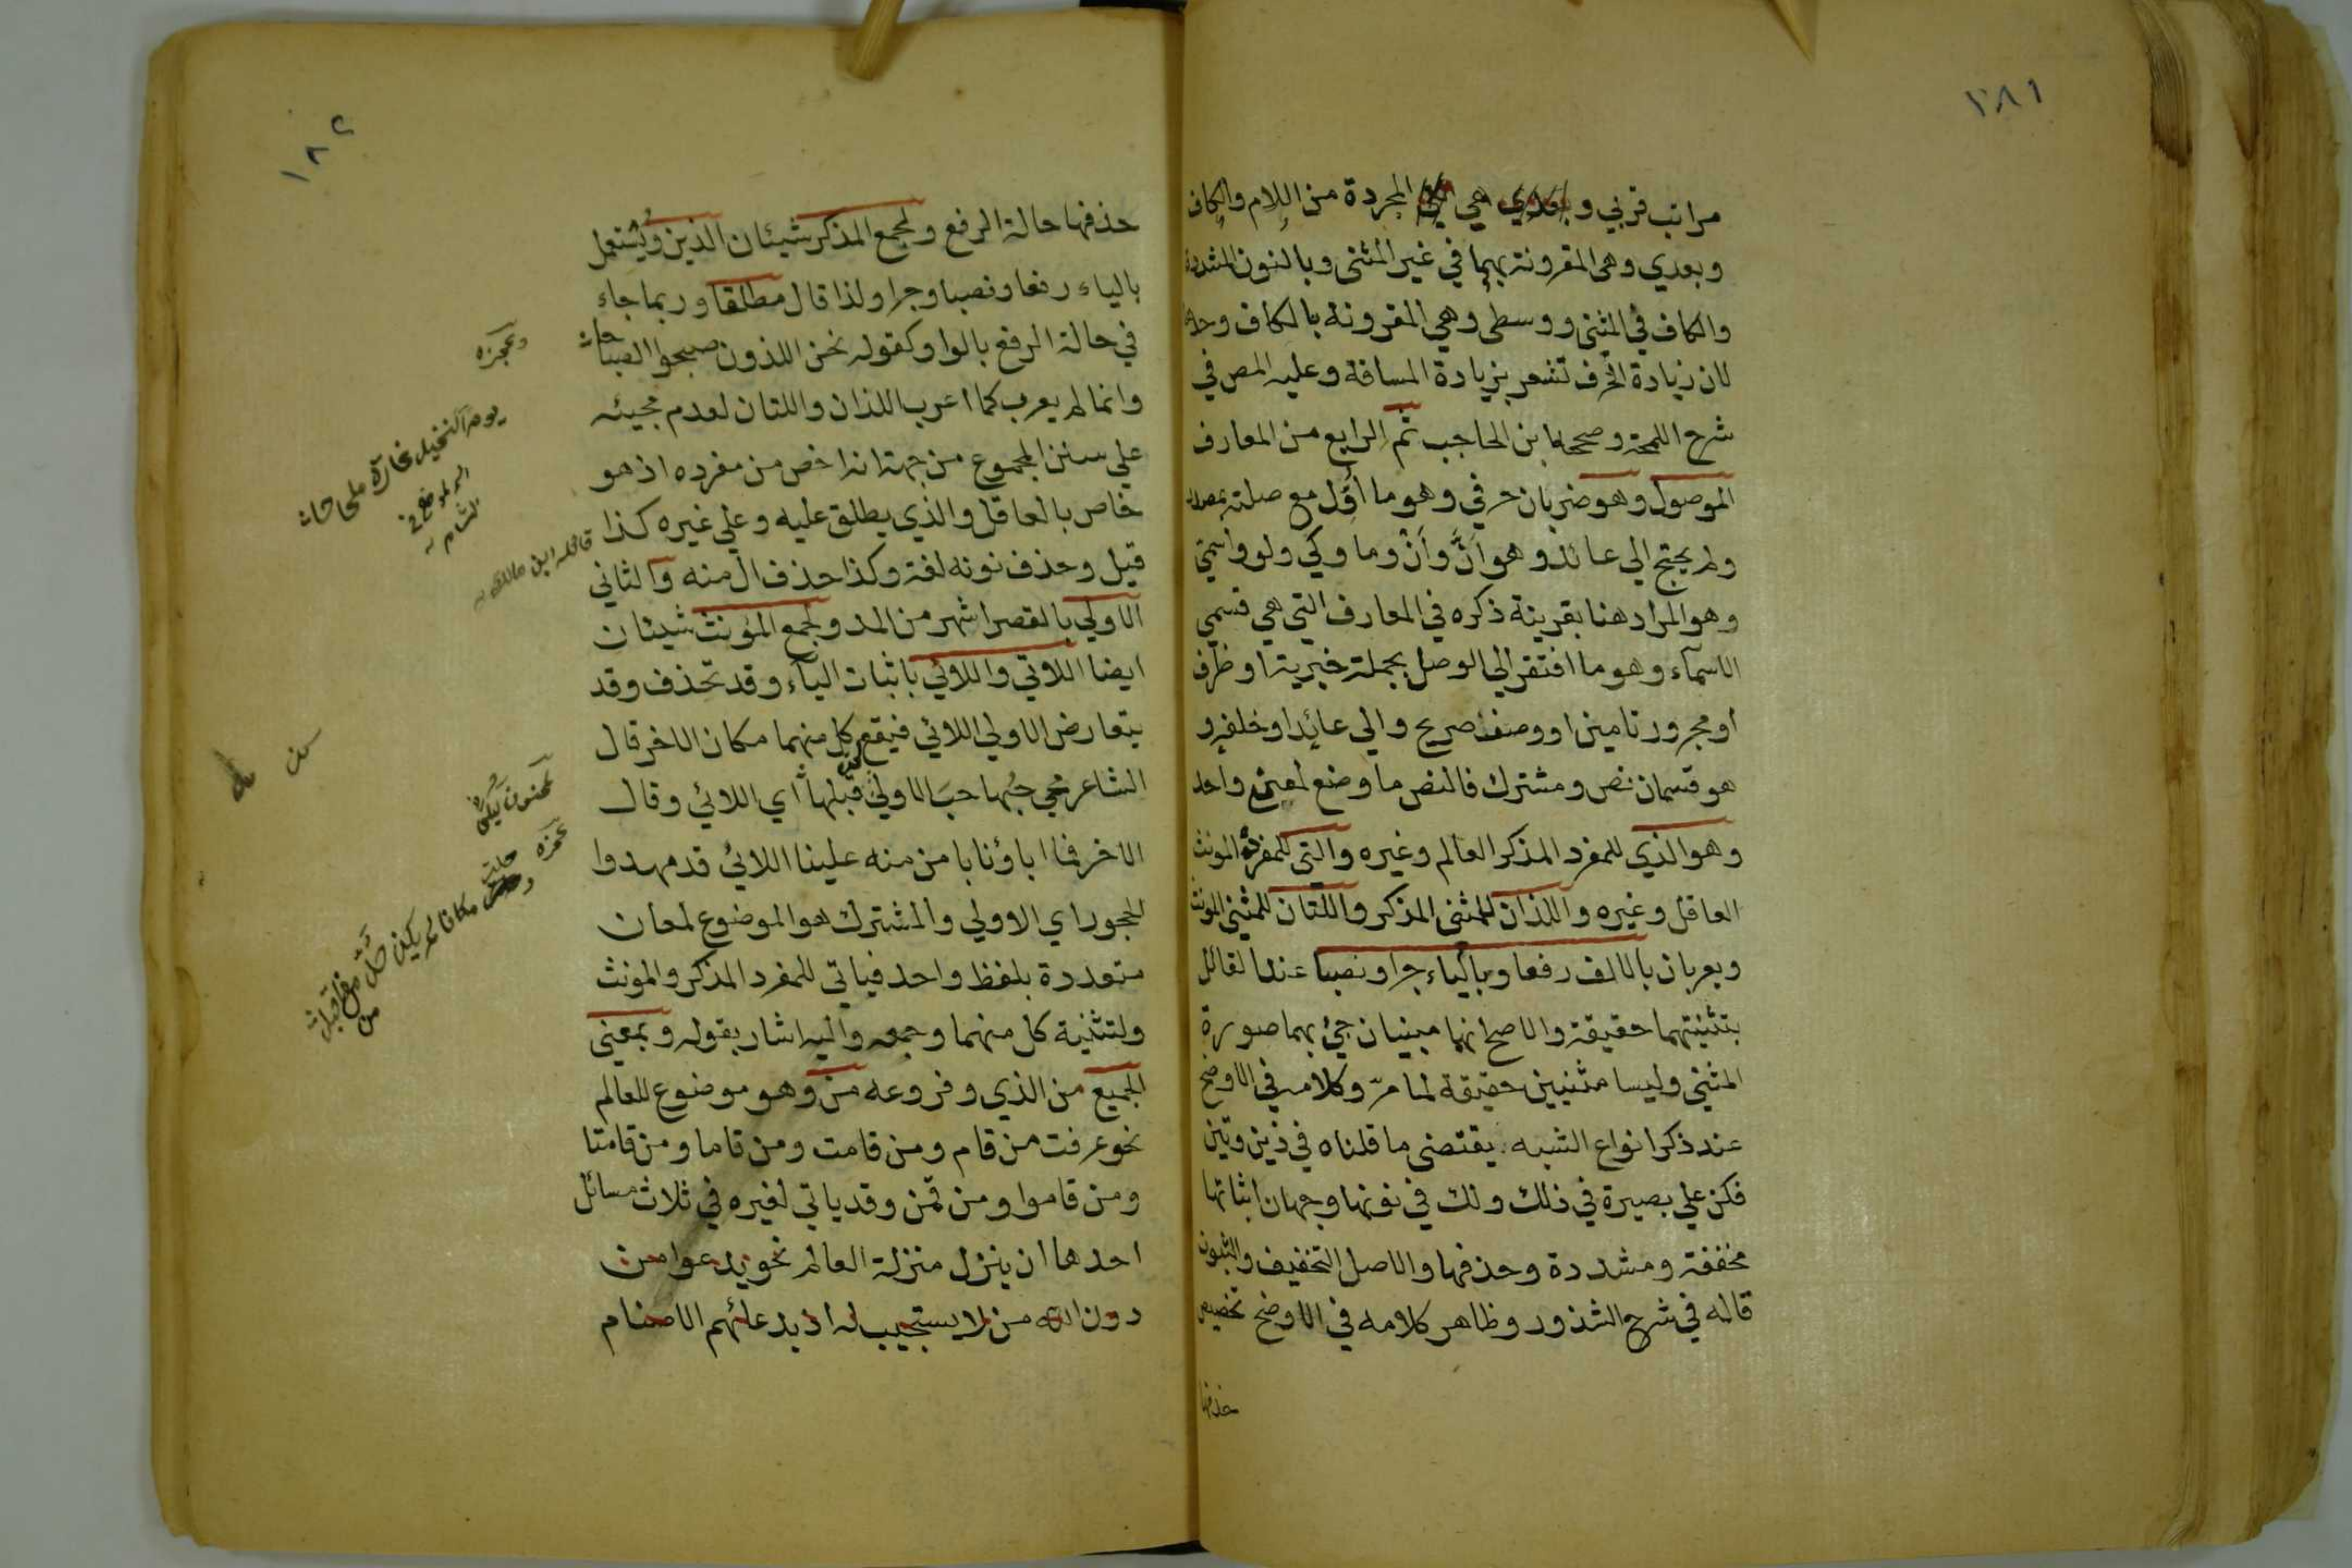 ١٨١
مراتب قربي و هي المجردة من اللام والكاف
وبعدي وهي المقرونة بهما في غير المثنى وبالنون المشددة
والكاف في المثنى ووسطى وهي المقرونة بالكاف وحدها
لان زيادة الحرف تشعر بزيادة المسافة وعليه المص في
شرح اللمحة وصححه ابن الحاجب ثم الرابع من المعارف
الموصول وهو ضربان حرفي وهو ما أُوِّل مع صلته بمصدر
ولم يحتج الي عائد وهو أنَّ وأنْ وما وكي ولو واسمي
وهو المراد هنا بقرينة ذكره في المعارف التي هي قسمي
الاسماء وهو ما افتقر الي الوصل بجملة خبرية او ظرف
او مجرور تامين او وصف صريح والي عائد او خلفه و
هو قسمان نص ومشترك فالنص ما وضع لمعنى واحد
وهو الذي للمفرد المذكر العالم وغيره والتي للمفردة المونث
العاقل وغيره واللذان للمثنى المذكر واللتان للمثنى المونث
ويعربان بالالف رفعا وبالياء جرا ونصبا عند القائل
بتثنيتهما حقيقة والاصح انهما مبنيان جيئ بهما صورة
المثني وليسا مثنيين حقيقة لما مرّ وكلامه في الاوضح
عند ذكر انواع الشبه يقتضي ما قلناه في ذين وتين
فكن علي بصيرة في ذلك ولك في نونها وجهان اثباتها
مخففة ومشددة وحذفها والاصل التخفيف والثبوت
قاله في شرح الشذور وظاهر كلامه في الاوضح تخصيص
حذفها
١٨٢
حذفها حالة الرفع ولجمع المذكر شيئان الذين ويُستعمل
بالياء رفعا ونصبا وجرا ولذا قال مطلقا وربما جاء
في حالة الرفع بالواو كقوله نحن اللذون صبحوا الصباحا
وانما لم يعرب كما اعرب اللذان واللتان لعدم مجيئه
علي سنن الجموع من جهة انه اخص من مفرده اذ هو
خاص بالعاقل والذي يطلق عليه وعلي غيره كذا
قيل وحذف نونه لغة وكذا حذف ال منه والثاني
الاولي بالقصر اشهر من المد ولجمع المؤنث شيئان
ايضا اللاتي واللائي باثبات الياء وقد تحذف وقد
يتعارض الاولي اللائي فيقع كل منهما مكان الاخر قال
الشاعر محي حُبها حبَ الاولي كنّ قبلها أي اللائي وقال
الاخر فما اباؤنا بامن منه علينا اللائي قد مهدوا
الحجور اي الاولي والمشترك هو الموضوع لمعان
متعددة بلفظ واحد فياتي للمفرد المذكر والمونث
ولتثنية كل منهما وجمعه واليه اشار بقوله وبمعني
الجميع من الذي وفروعه من وهو موضوع للعالم
نحو عرفت من قام ومن قامت ومن قاما ومن قامتا
ومن قاموا ومن قمن وقد ياتي لغيره في ثلاث مسائل
احدها ان ينزل منزلة العالم نحو يدعوا من
دون الله من لا يستجيب له اذ بدعائهم الاصنام
وعجزه
يوم النخيل غارة ملحاحا
اسم لموضع في
الشام
قاله ابن مالك
عجزه
وحلت مكانا لم يكن حلّ من قبل